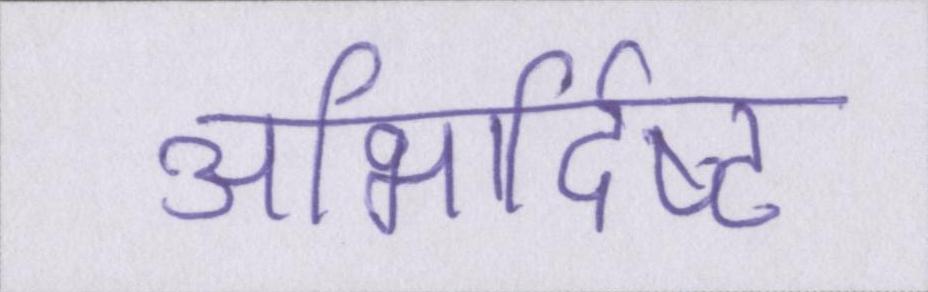 अभिर्दिष्ट